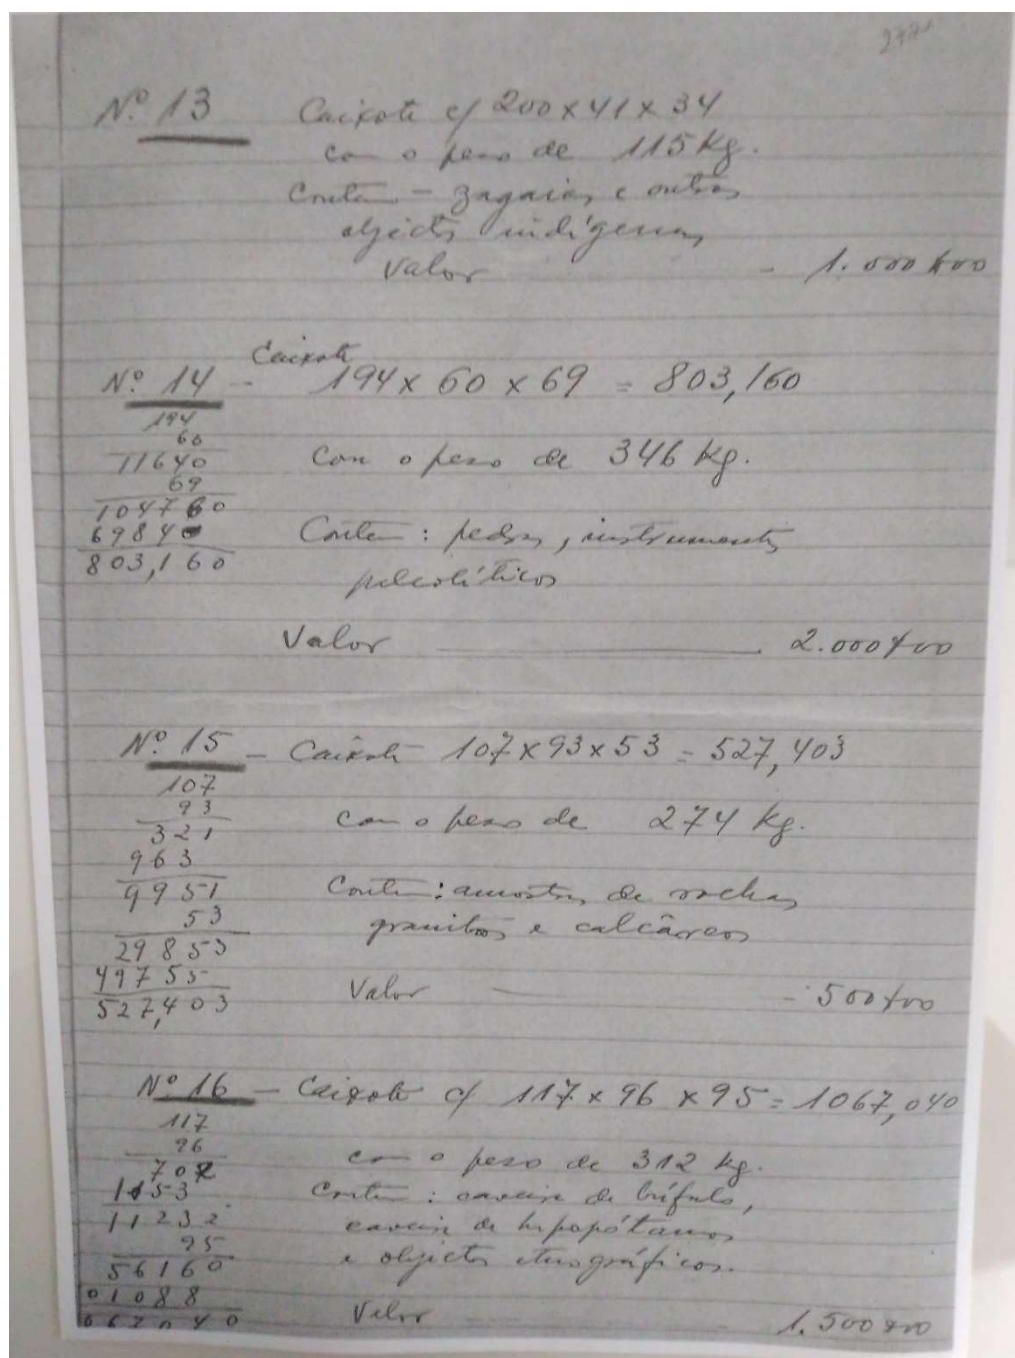 Nº 13 Caixote c/ 200 x 41 x 34
com o peso de 115 Kg.
Contem - zagaias e outros
objectos indígenas
Valor - 1.000$00
Caixote
Nº 14 - 194 x 60 x 69 = 803,160
194
60
11640
69
104760
69840
803,160
Com o peso de 346 Kg.
Contem : pedras, instrumentos
paleolíticos
Valor 2.000$00
Nº 15 - Caixote 107 x 93 x 53 = 527,403
107
93
321
963
9951
53
29853
49755
527,403
com o peso de 274 Kg.
Contem : amostras de rochas
granitos e calcáreos
Valor - 500$00
Nº 16 - Caixote c/ 117 x 96 x 95 = 1067,040
117
96
702
1053
11232
95
56160
01088
067040
com o peso de 312 Kg.
Contem : caveira de búfalo,
caveira de hipopótamos
e objectos etnográficos.
Valor 1.500$00